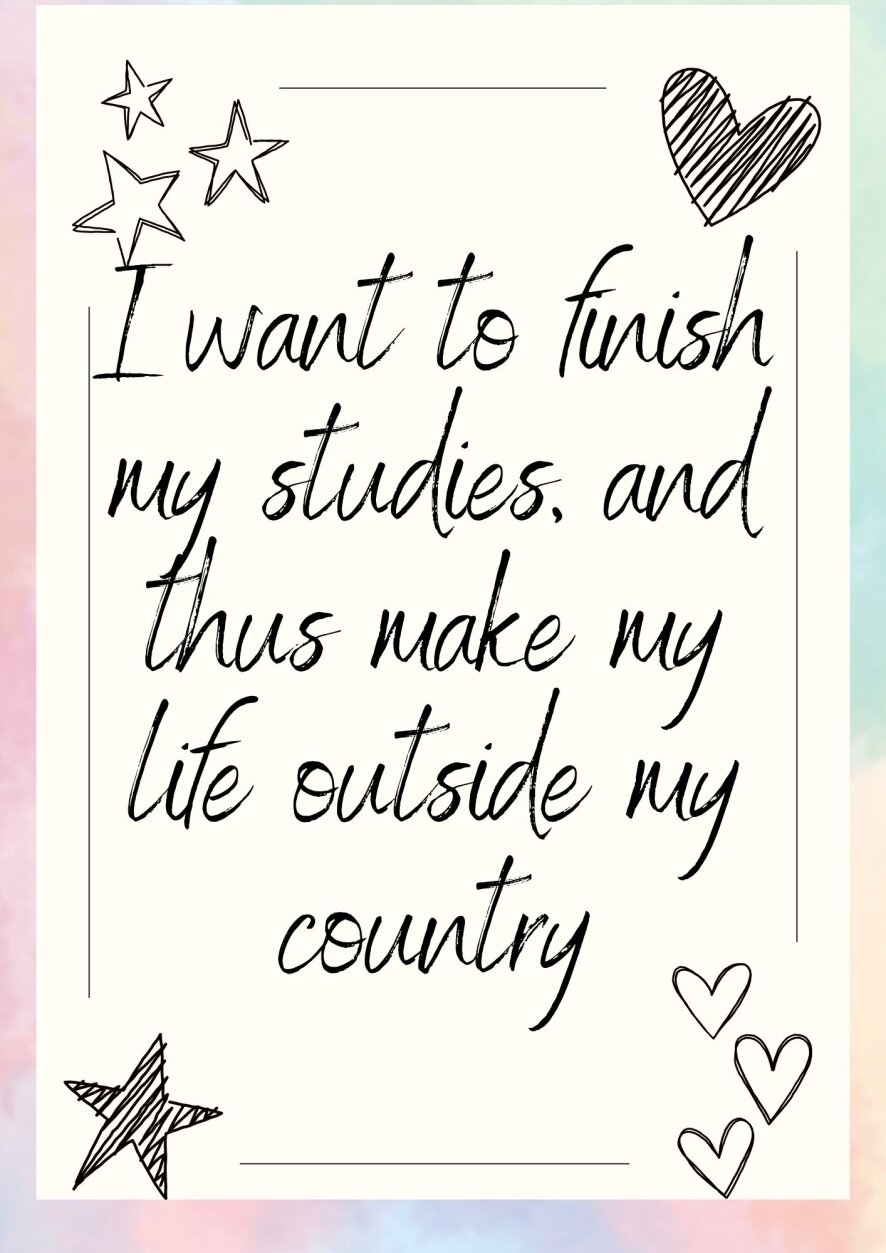 I want to finish
my studies, and
thus make my
life outside my
country